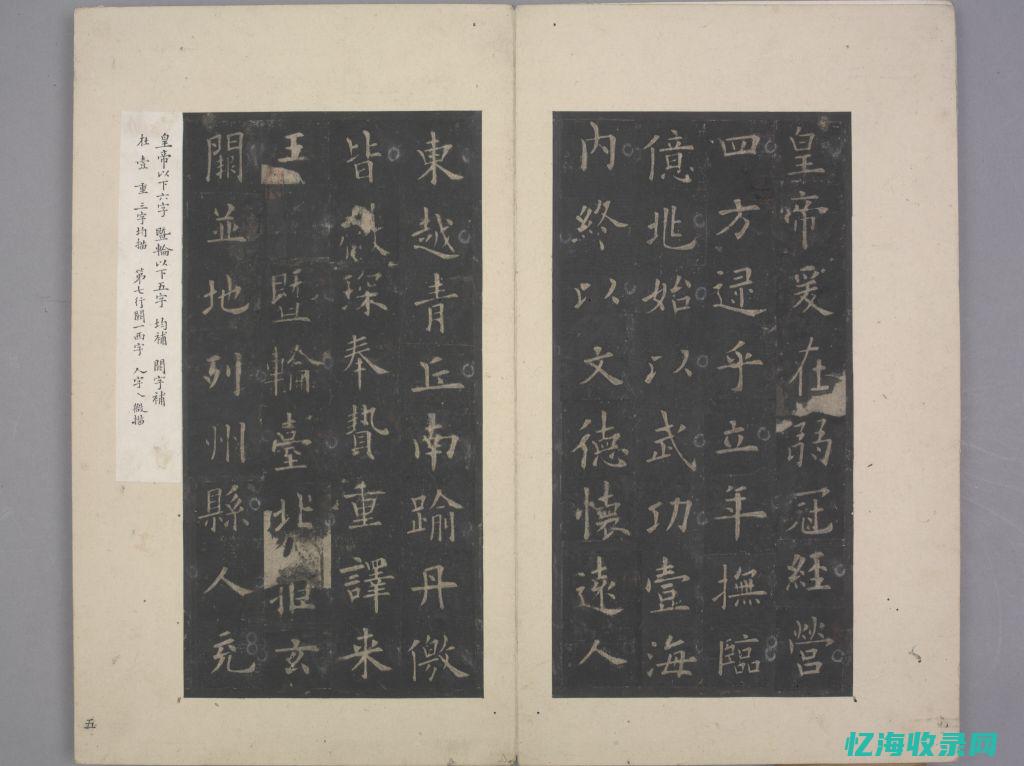 皇帝爰在弱冠經營
四方逯乎立年撫臨
億兆始以武功壹海
內終以文德懷遠人
東越青丘南踰丹儌
皆獻琛奉贄重譯来
王暨輪臺北拒玄
闕並地列州縣人充
皇帝以下六字 暨輪以下五字 均補 闕字補
在 壹 重 三字均描 第七行闕一西字 人字乀微描
五
忆海收录网